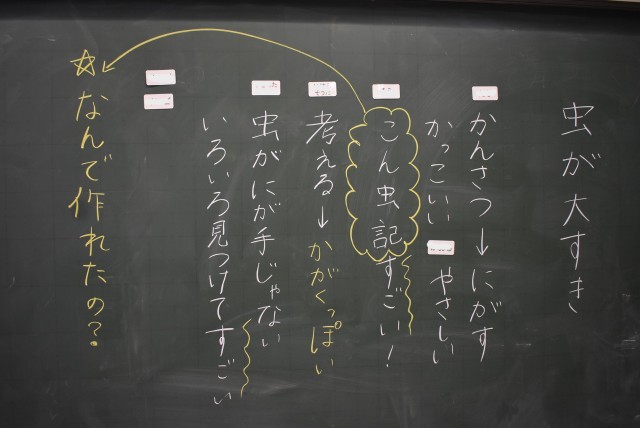 虫が大すき
かんさつ→にがす
かっこいい
やさしい
こん虫記すごい!
考える→かがくっぽい
虫がにが手じゃない
いろいろ見つけてすごい
☆なんで作れたの?